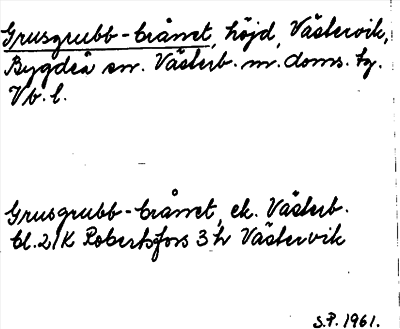 Grusgrubb-trånet, höjd, Västervik,
Bygdeå sn. Västerb. m. doms. tg.
Vb. l.
Grusgrubb-trånet, ek. Västerb.
bl. 21K Robertsfors 3h Västervik
S.P. 1961.